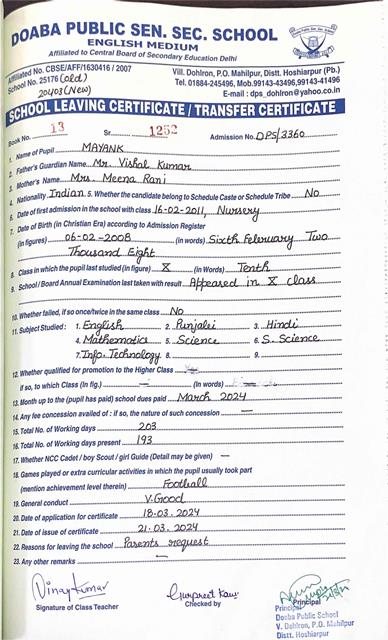 DOABA PUBLIC SEN. SEC. SCHOOL
ENGLISH MEDIUM
Affiliated to Central Board of Secondary Education Delhi
Affiliated No. CBSE/AFF/1630416 / 2007
School No. 25176 (old)
20403 (New)
Vill. Dohlron, P.O. Mahilpur, Distt. Hoshiarpur (Pb.)
Tel. 01884-245496, Mob.99143-41499,99143-41496
E-mail : dps_dohlron@yahoo.co.in
SCHOOL LEAVING CERTIFICATE / TRANSFER CERTIFICATE
Book No. 13 Sr. 1252 Admission No. DPS/3360
1. Name of Pupil MAYANK
2. Father's Guardian Name Mr. Vishal Kumar
3. Mother's Name Mrs. Meena Rani
4. Nationality Indian 5. Whether the candidate belong to Schedule Caste or Schedule Tribe No
6. Date of first admission in the school with class 16-02-2011, Nursery
7. Date of Birth (in Christian Era) according to Admission Register
(in figures) 06-02-2008 (in words) Sixth February Two
Thousand Eight
8. Class in which the pupil last studied (in figure) X (in Words) Tenth
9. School / Board Annual Examination last taken with result Appeared in X class
10. Whether failed, if so once/twice in the same class No
11. Subject Studied : 1. English 2. Punjabi 3. Hindi
4. Mathematics 5. Science 6. S. Science
7. Info. Technology 8. 9.
12. Whether qualified for promotion to the Higher Class
if so, to which Class (In fig.) — (in words)
13. Month up to the (pupil has paid) school dues paid March 2024
14. Any fee concession availed of : if so, the nature of such concession —
15. Total No. of Working days 203
16. Total No. of Working days present 193
17. Whether NCC Cadet / boy Scout / girl Guide (Detail may be given) —
18. Games played or extra curricular activities in which the pupil usually took part
(mention achievement level therein) Football
19. General conduct V.Good
20. Date of application for certificate 18-03-2024
21. Date of issue of certificate 21-03-2024
22. Reasons for leaving the school Parents request
23. Any other remarks —
Vinay Kumar
Signature of Class Teacher
Gurpreet Kaur
Checked by
Principal
Principal
Doaba Public School
V. Dohlron, P.O. Mahilpur
Distt. Hoshiarpur